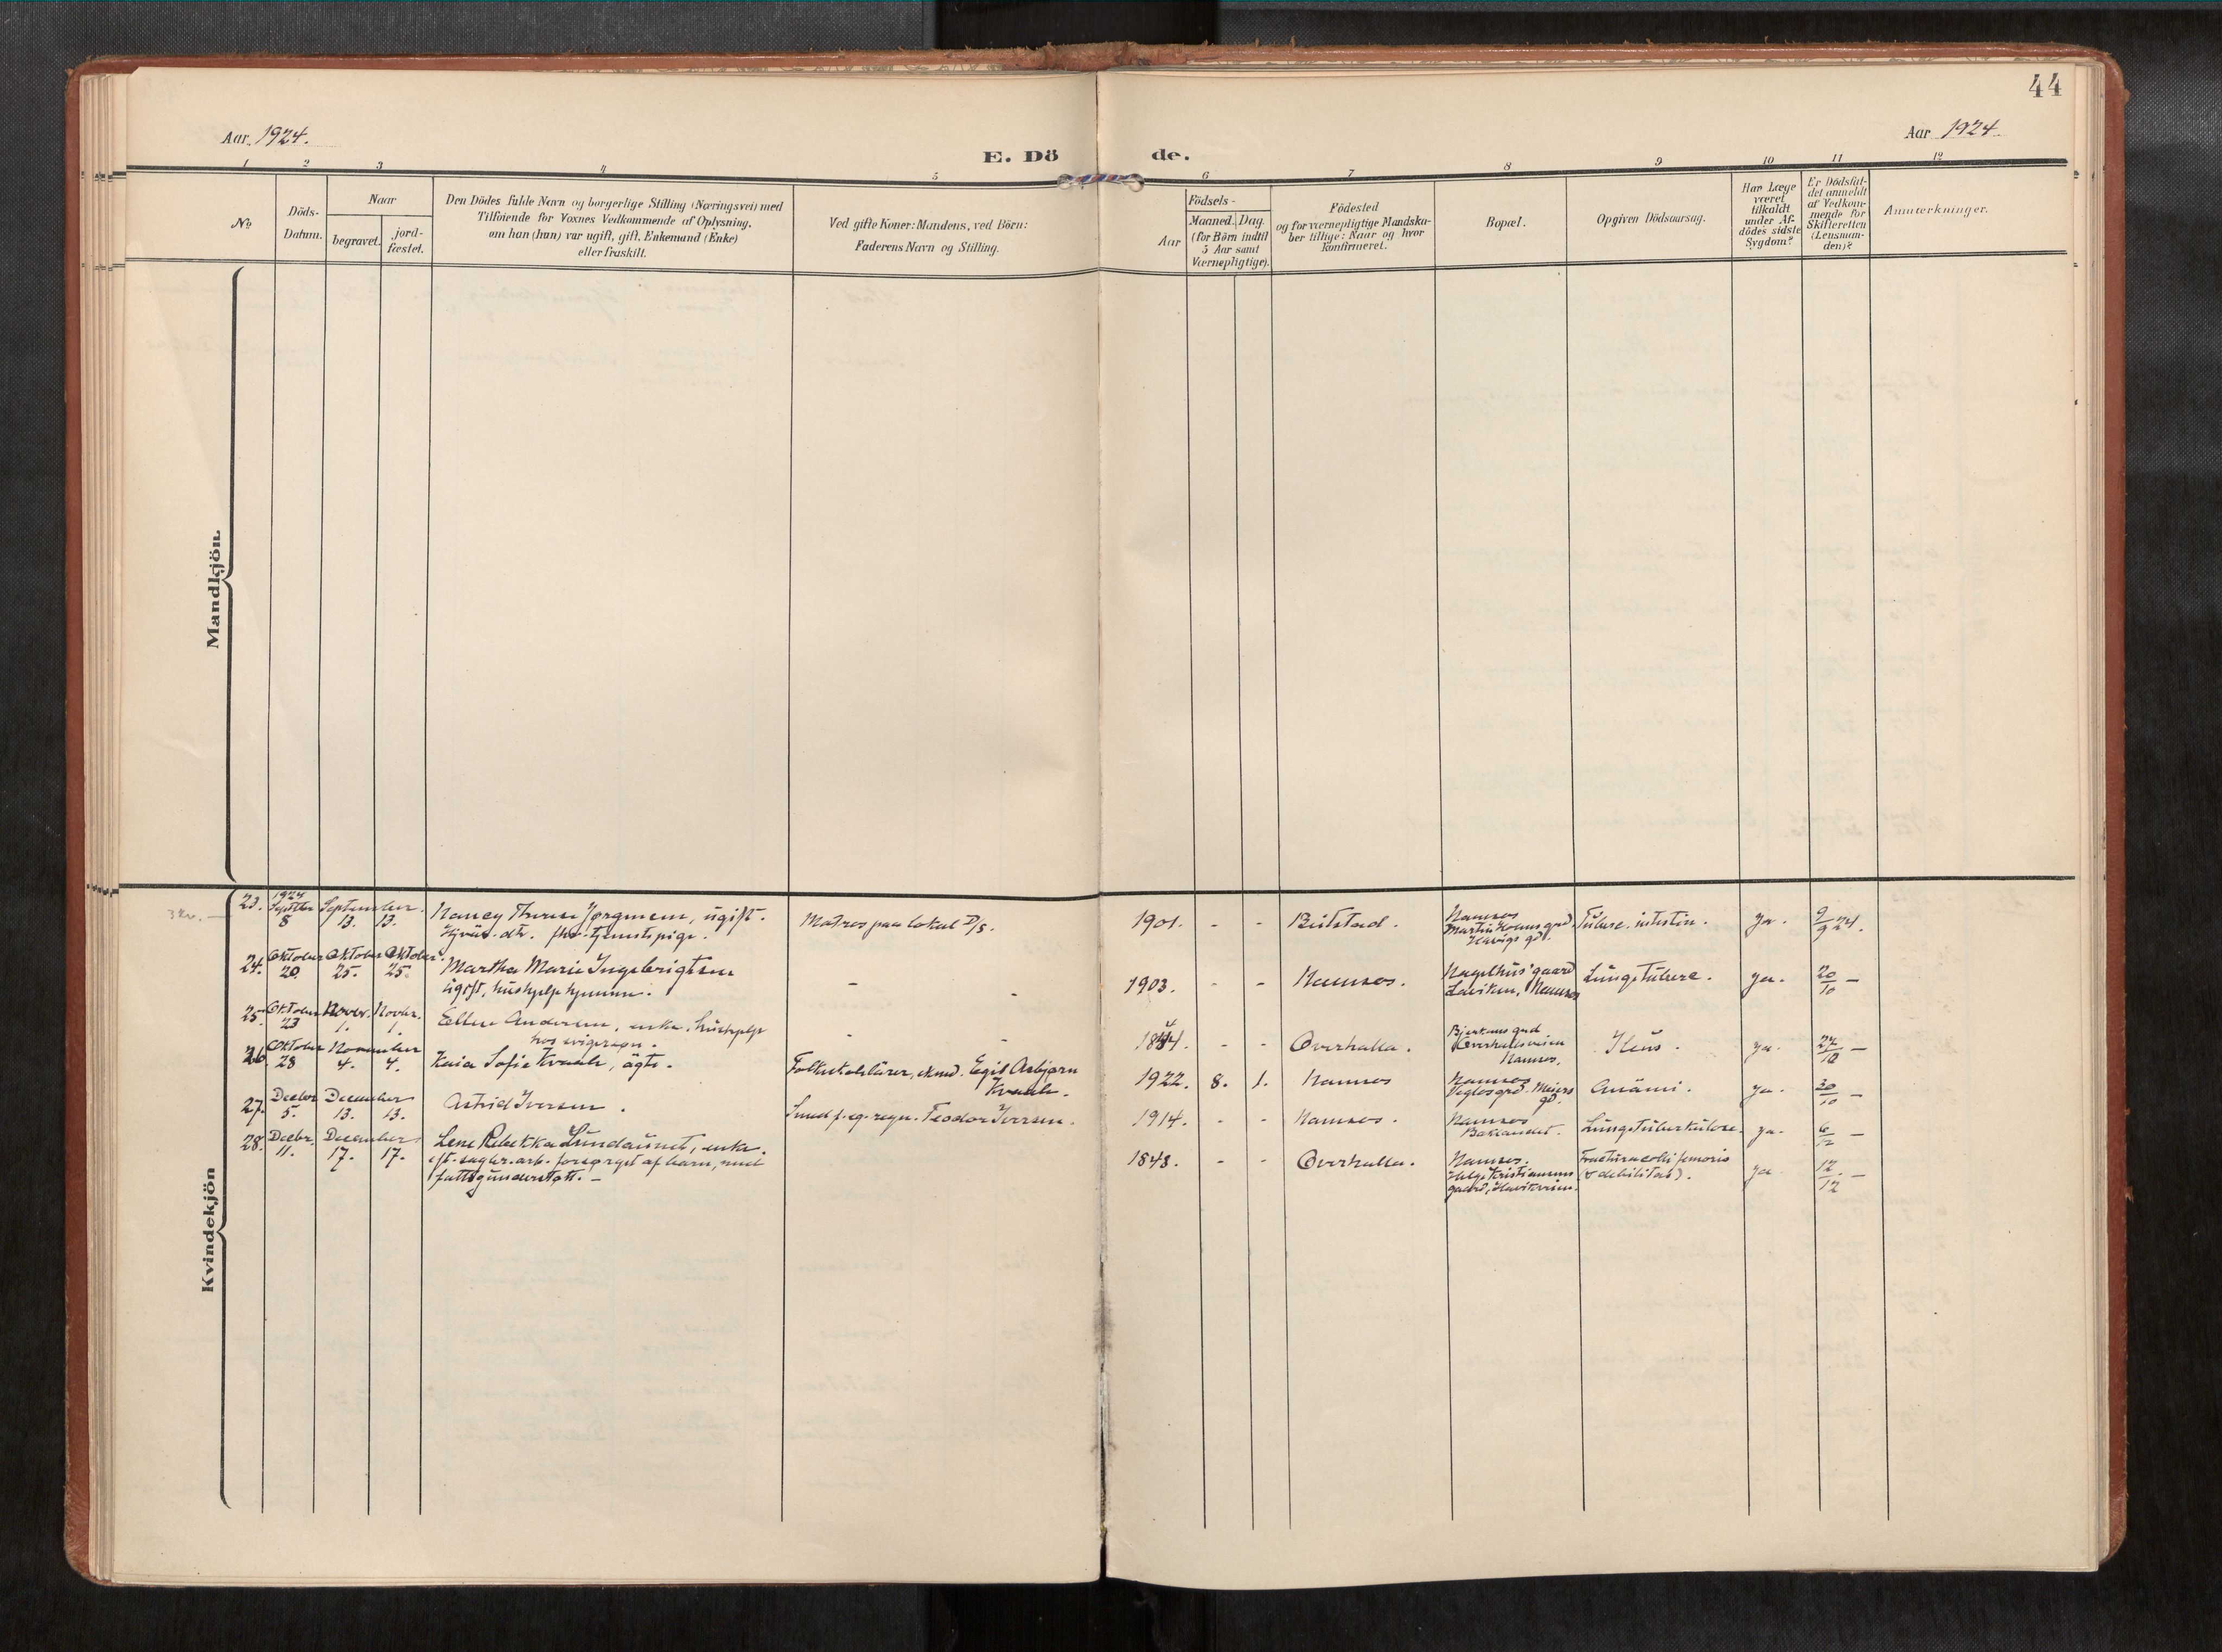 44
Aar 1924.
Aar 1924.
E. Dö de.
1 2 3 4 5 6 7 8 9 10 11 12
No.
Döds-
Datum.
Naar
begravet.
jord-
fæstet.
Den Dödes fulde Navn og borgerlige Stilling (Næringsvei) med
Tilföiende for Voxnes Vedkommende af Oplysning,
om han (hun) var ugift, gift, Enkemand (Enke)
eller fraskilt.
Ved gifte Koner: Mandens, ved Börn:
Faderens Navn og Stilling.
Födsels-
Aar
Maaned. Dag.
(for Börn indtil
5 Aar samt
Værnepligtige).
Födested
og for værnepligtige Mandska-
ber tillige: Naar og hvor
konfirmeret.
Bopæl.
Opgiven Dödsaarsag.
Har Læge
været
tilkaldt
under Af-
dödes sidste
Sygdom?
Er Dödsfal-
det anmeldt
af Vedkom-
mende for
Skifteretten
(Lensman-
den)?
Anmærkninger.
Mandkjön.
Kvindekjön
23. 1924 Septbr 8 September 13. 13. Nancy Jørgensen, ugift. Matros paa lokal D/s. 1901. - - Beitstad. Namsos Tuberc. intestin. ja. 9/9 24.
tjenestepige.
24. Oktober 20. Oktober 25. Oktober 25. Martha Marie Ingebrigtsen - - 1903. - - Namsos. gaard Lungetuberc. ja. 20/10 -
ugift, hushjelp hjemme. Namsos
25. Oktober 23 Novbr. 1. Novbr. 1. Ellen Andersen, enke, hushjelp - 1844. - - Overhalla. Ileus. ja. 27/10 -
hos svigersøn. Namsos.
26. Oktober 28 November 4. 4. Kaia Sofie Kvaale, ägte. Egil Asbjørn 1922. 8. 1. Namsos Namsos Anämi. ja. 30/10 -
Kvaale.
27. Decbr 5. December 13. 13. Astrid Iversen. Smed f. eg. regn. Teodor Iversen. 1914. - - Namsos. Namsos Lungetuberkulose. ja. 6/12 -
28. Decbr. 11. December 17. 17. Lene Rebekka Lundaunet, enke. 1848. - - Overhalla. Namsos. Fractura colli femoris ja. 12/12 -
eft. sagbr. arb. forsørget af barn, med Helge Kristiansens (& debilitas).
fattigunderstøtt. -